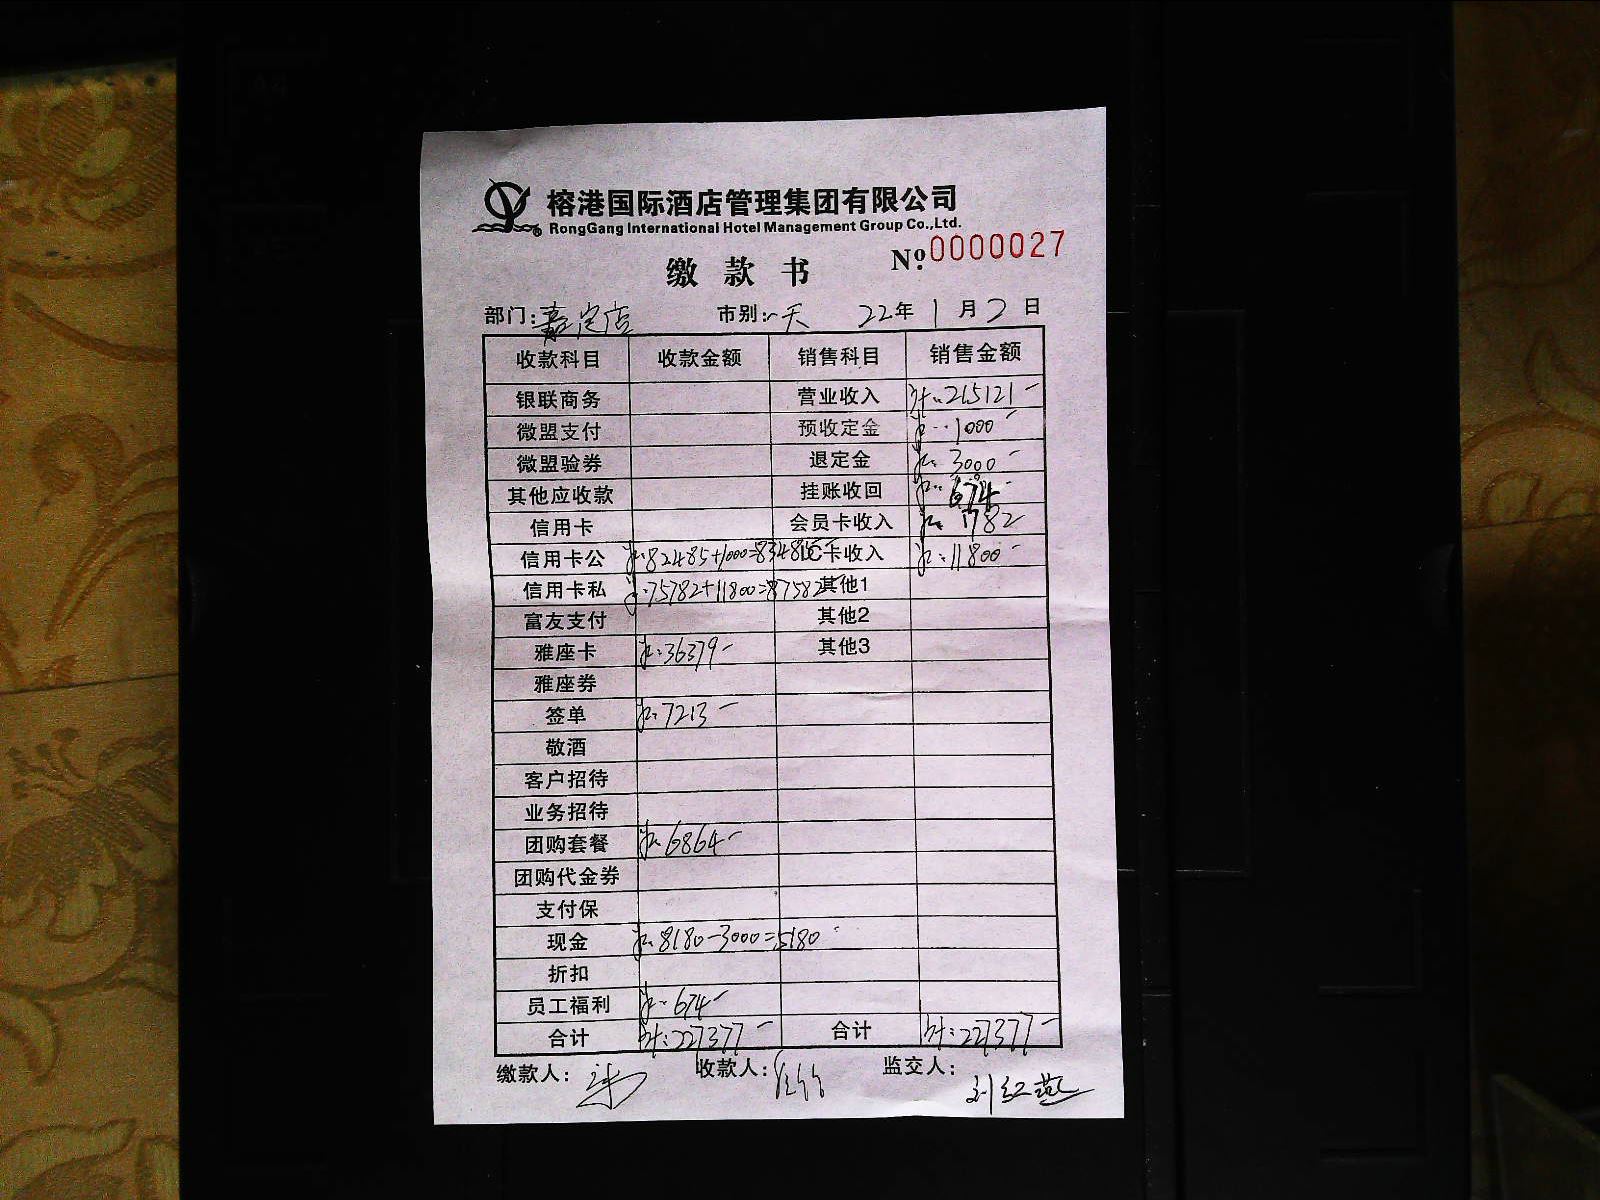 榕港国际酒店管理集团有限公司
RongGang International Hotel Management Group Co.,Ltd.
缴款书 Nº: 0000027
部门: 嘉定店 市别: 一天 22年 1月 2日
收款科目 收款金额 销售科目 销售金额
银联商务 营业收入 计: 215121-
微盟支付 预收定金 计: 1000-
微盟验券 退定金 计: 3000-
其他应收款 挂账收回 计: 674-
信用卡 会员卡收入 计: 1782
信用卡公 计: 82485+1000=83485 IC卡收入 计: 11800-
信用卡私 计: 75782+11800=87582 其他1
富友支付 其他2
雅座卡 计: 36379- 其他3
雅座券
签单 计: 7213-
敬酒
客户招待
业务招待
团购套餐 计: 6864-
团购代金券
支付保
现金 计: 8180-3000=5180
折扣
员工福利 计: 674-
合计 计: 227377- 合计 计: 227377-
缴款人: 收款人: 监交人: 刘红燕